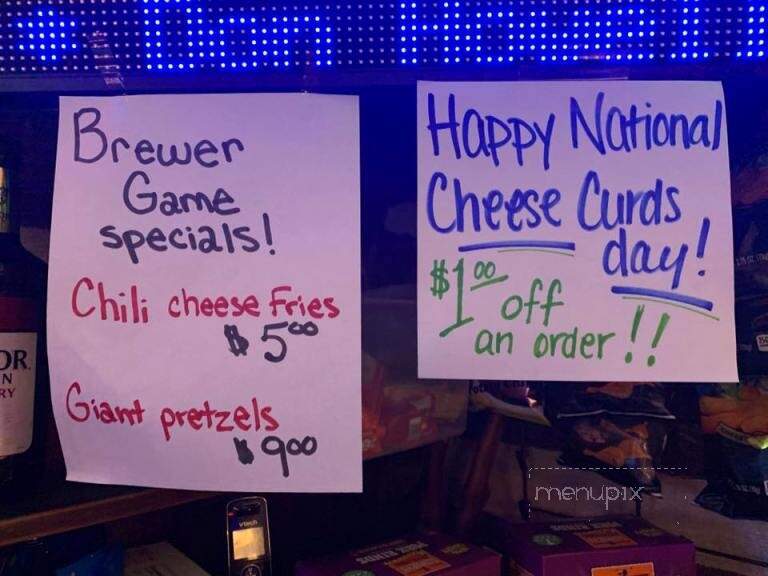 Brewer
Game
specials!
Chili cheese Fries
$5.00
Giant pretzels
$9.00
Happy National
Cheese Curds
day!
$1.00 off
an order!!
OR.
N
RY
vtech
menupix